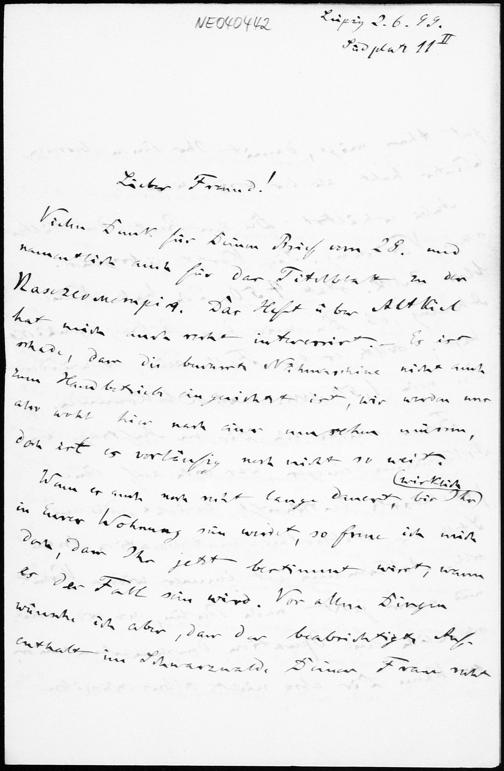 NE040442
Leipzig 2.6.99.
Südplatz 11 II
Lieber Freund!
Vielen Dank für Deinen Brief vom 28. und
namentlich auch für das Titelblatt zu der
Das Heft über Alt Kiel
hat mich auch recht interessirt. – Es ist
schade, dass die bewusste Nähmaschine nicht auch
zum Handbetrieb eingerichtet ist, wir werden uns
also wohl hier nach einer umsehen müssen,
doch ist es vorläufig noch nicht so weit.
Wenn es auch noch recht lange dauert, bis Ihr (wirklich)
in Eurer Wohnung sein werdet, so freue ich mich
doch, dass Ihr jetzt bestimmt wisst, wann
es der Fall sein wird. Vor allen Dingen
wünsche ich aber, dass der beabsichtigte Auf-
enthalt im Schwarzwalde Deiner Frau recht